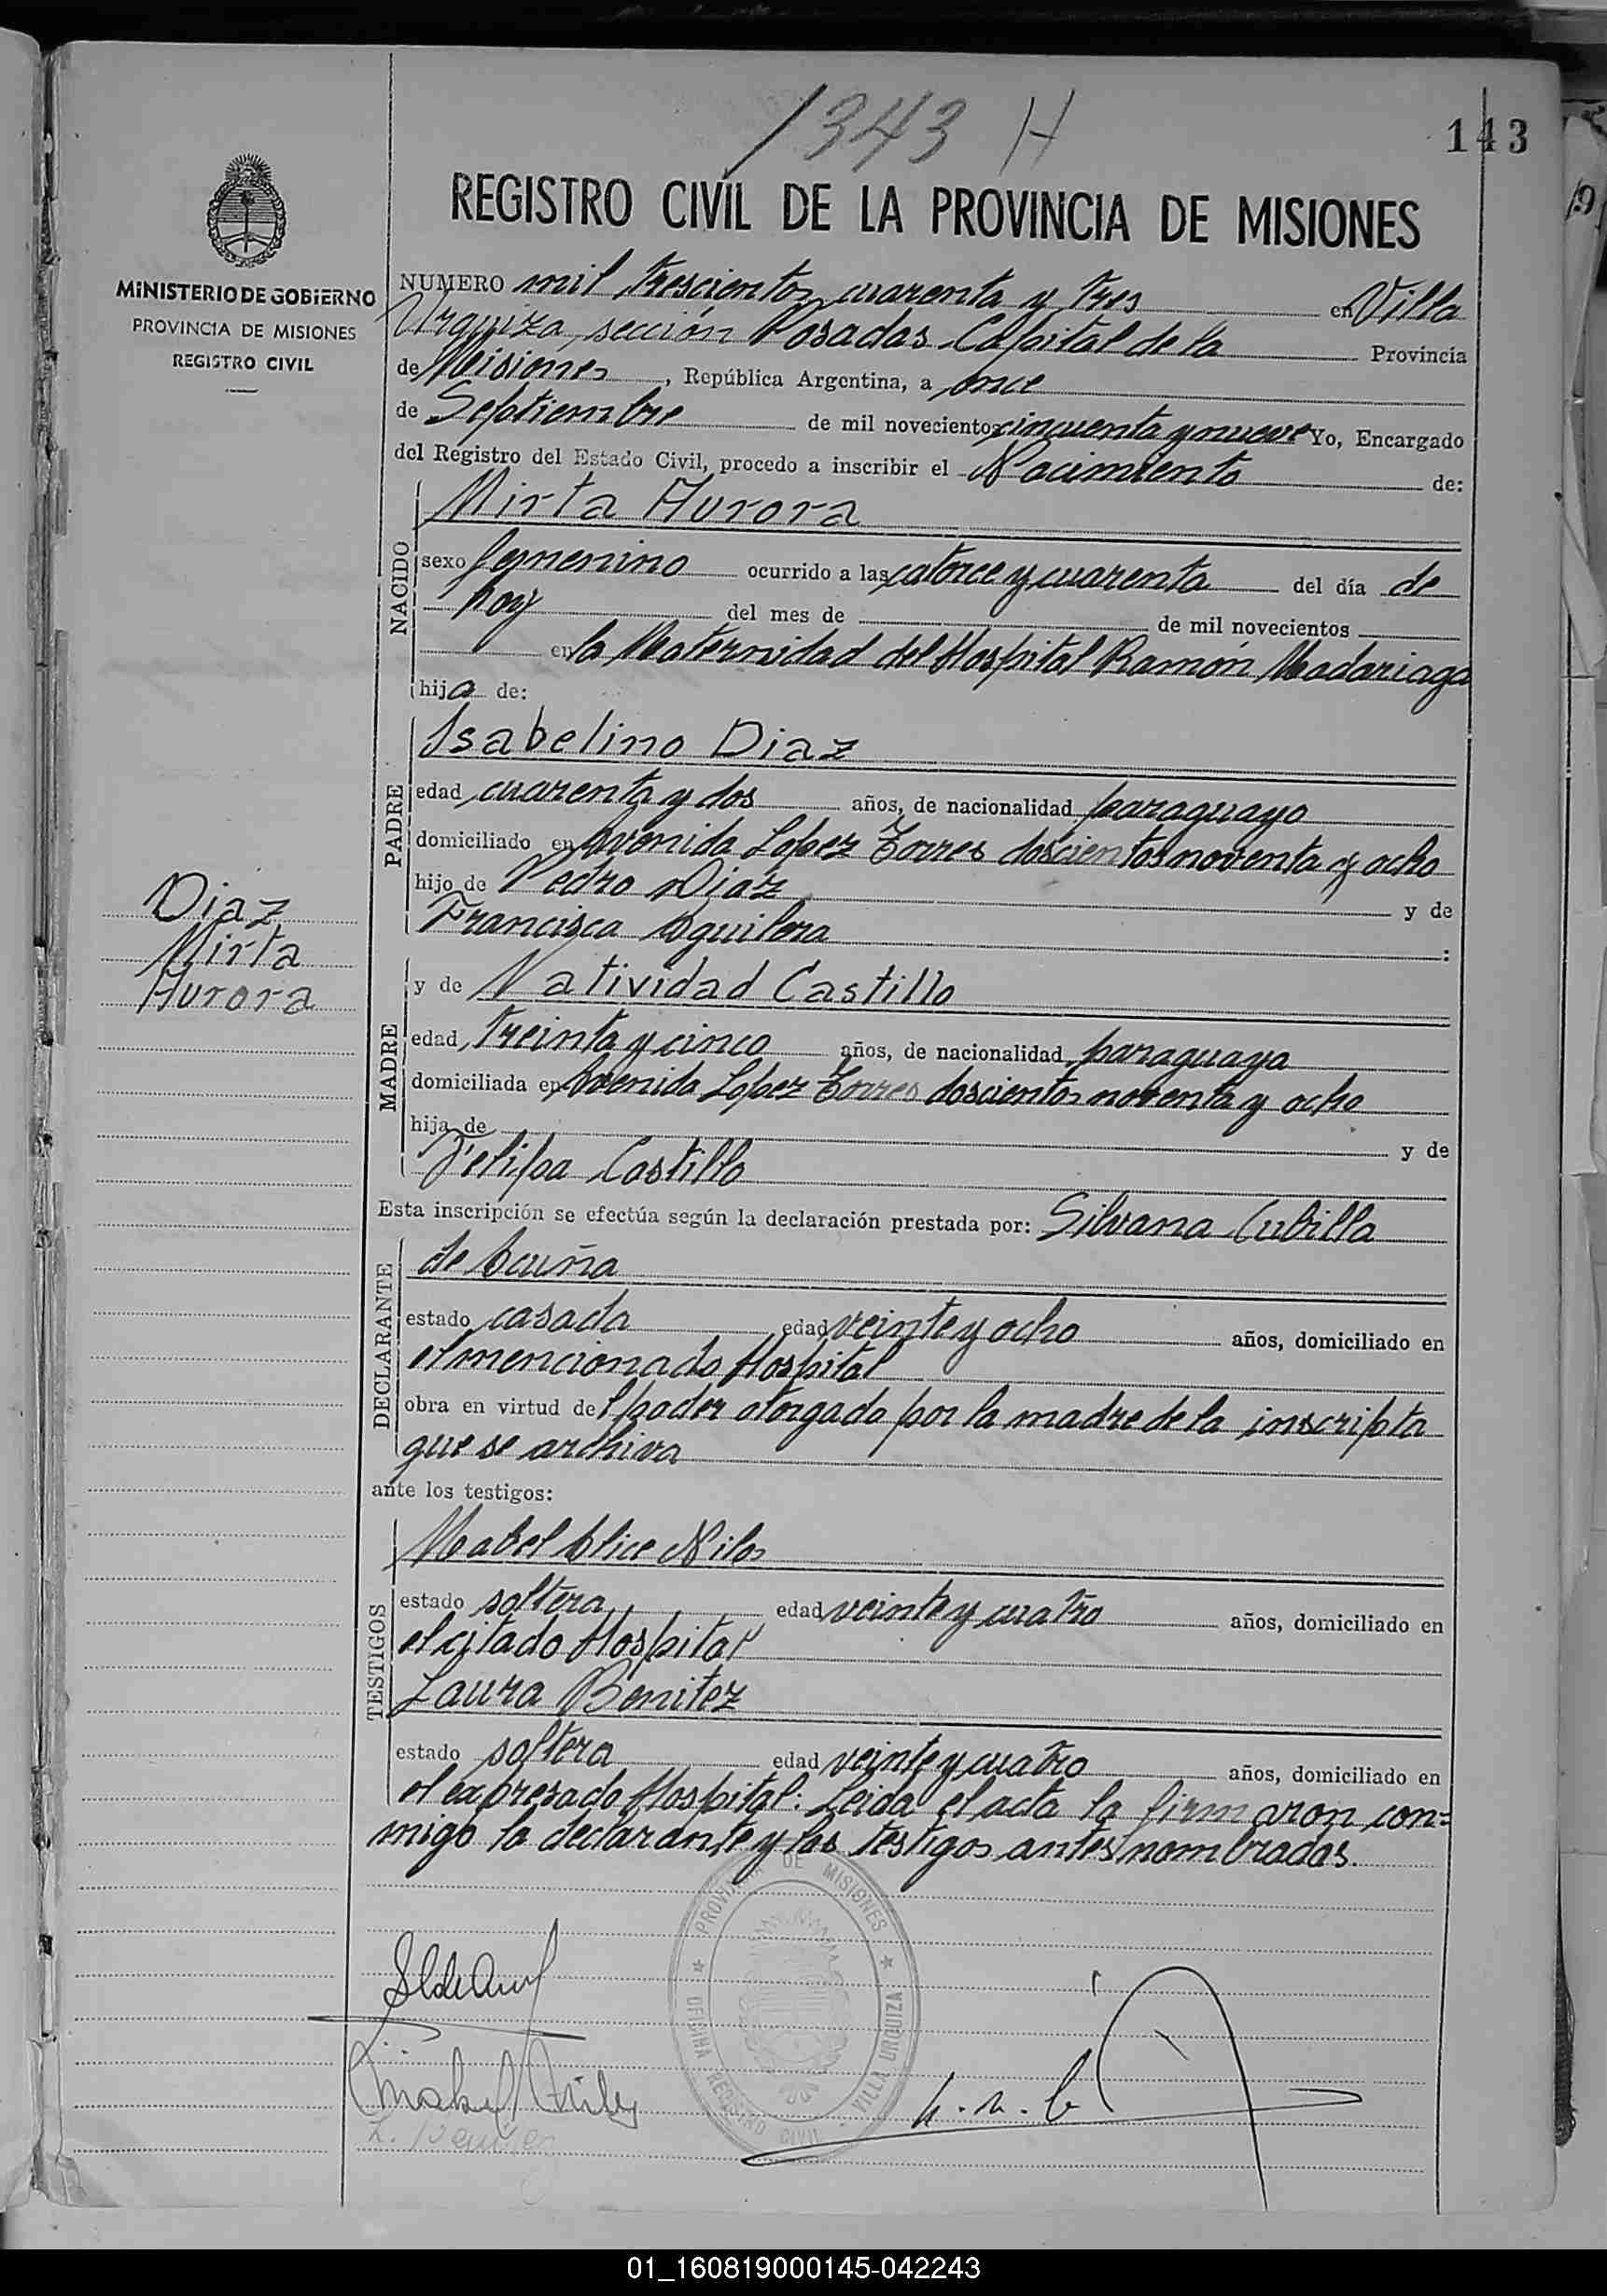 1343 H
143
REGISTRO CIVIL DE LA PROVINCIA DE MISIONES
MINISTERIO DE GOBIERNO
PROVINCIA DE MISIONES
REGISTRO CIVIL
NUMERO mil trescientos cuarenta y tres en Villa
Urquiza, sección Posadas Capital de la Provincia
de Misiones, República Argentina, a once
de Septiembre de mil novecientos cincuenta y nueve Yo, Encargado
del Registro del Estado Civil, procedo a inscribir el Nacimiento de:
NACIDO
Mirta Aurora
sexo femenino ocurrido a las catorce y cuarenta del día de
hoy del mes de de mil novecientos
en la Maternidad del Hospital Ramón Madariaga
hija de:
PADRE
Isabelino Diaz
edad cuarenta y dos años, de nacionalidad paraguayo
domiciliado en Avenida Lopez Torres doscientos noventa y ocho
hijo de Pedro Diaz y de
Francisca Aguilera :
MADRE
y de Natividad Castillo
edad treinta y cinco años, de nacionalidad paraguaya
domiciliada en Avenida Lopez Torres doscientos noventa y ocho
hija de y de
Felipa Castillo
Diaz
Mirta
Aurora
Esta inscripción se efectúa según la declaración prestada por: Silvana Cubilla
DECLARANTE
de Acuña
estado casada edad veinte y ocho años, domiciliado en
el mencionado Hospital
obra en virtud del poder otorgado por la madre de la inscripta
que se archiva
ante los testigos:
TESTIGOS
Mabel Alice Niles
estado soltera edad veinte y cuatro años, domiciliado en
el citado Hospital
Laura Benitez
estado soltera edad veinte y cuatro años, domiciliado en
el expresado Hospital: Leida el acta la firmaron con=
migo la declarante y los testigos antes nombrados.
PROVINCIA DE MISIONES
OFICINA REGISTRO CIVIL VILLA URQUIZA
Mabel Niles
L. Benitez
01_160819000145-042243